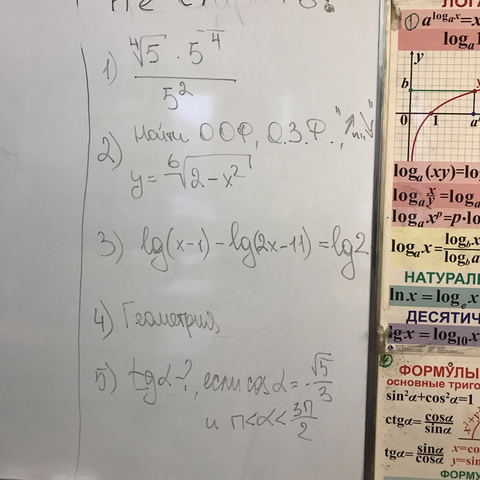 Не
1) ⁴√5 · 5⁻⁴
5²
2) Найти ООФ, О.З.Ф., "↗" и "↘"
y = ⁶√(2 - x²)
3) lg(x-1) - lg(2x-11) = lg2
4) Геометрия
5) tgα-?, если cosα = -√5/3
и π<α<3π/2
ЛОГА
a^(logₐx)=x
logₐ1
y
b
0
1
a
logₐ(xy)=log
logₐ x/y =logₐ
logₐxᵖ=p·lo
logₐx= log_b x / log_b a
НАТУРАЛЬ
ln x = logₑx
ДЕСЯТИЧ
lg x = log₁₀x
ФОРМУЛЫ
основные триго
sin²α+cos²α=1
ctgα= cosα/sinα
tgα= sinα/cosα
x=co
y=sin
ФОРМУ